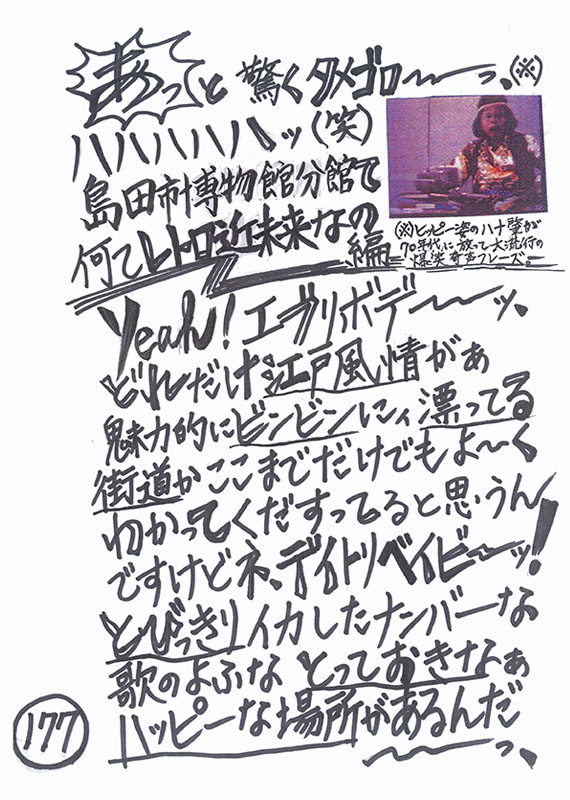 あっと驚くタメゴロ〜〜っ、(※)
ハハハハハハッ(笑)
島田市博物館分館で
何てレトロ近未来なの編
(※)ヒッピー姿のハナ肇が
70年代に放って大流行の
爆笑奇声フレーズ。
Yeah!エヴリボデ〜〜ッ、
どれだけ江戸風情がぁ
魅力的にビンビンにィ漂ってる
街道かここまでだけでもよ〜く
わかってくだすってると思うん
ですけどネ、デイトリベイビ〜〜ッ!
とびっきりイカしたナンバーな
歌のよふな とっておきなぁ
ハッピーな場所があるんだ
〜〜っ、
177